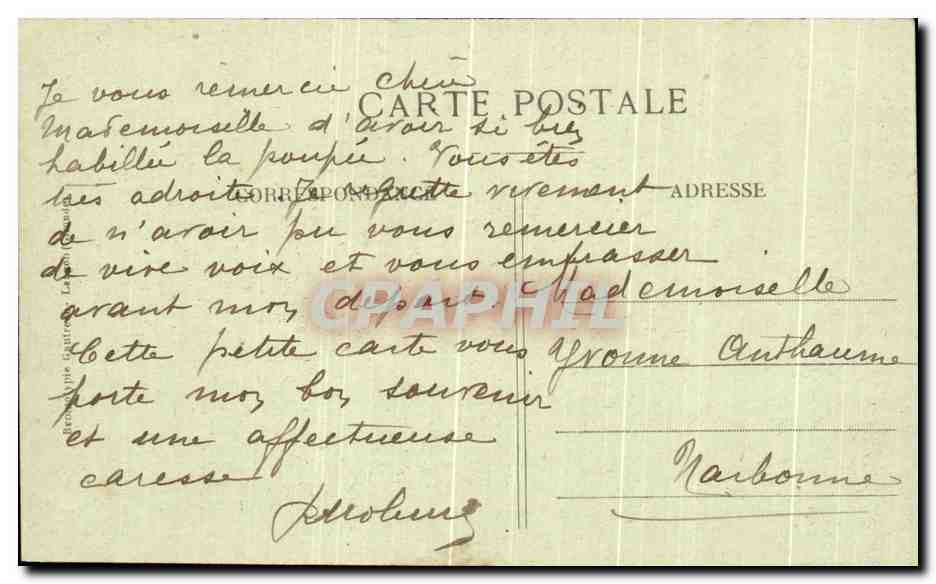 CARTE POSTALE
CORRESPONDANCE
ADRESSE
Je vous remercie chère
Mademoiselle d'avoir si bien
habillée la poupée. Vous êtes
très adroite. Je regrette vivement
de n'avoir pu vous remercier
de vive voix et vous embrasser
avant mon départ.
Cette petite carte vous
porte mon bon souvenir
et une affectueuse
caresse
Mademoiselle
Yvonne Anthaume
Narbonne
CPAPHIL